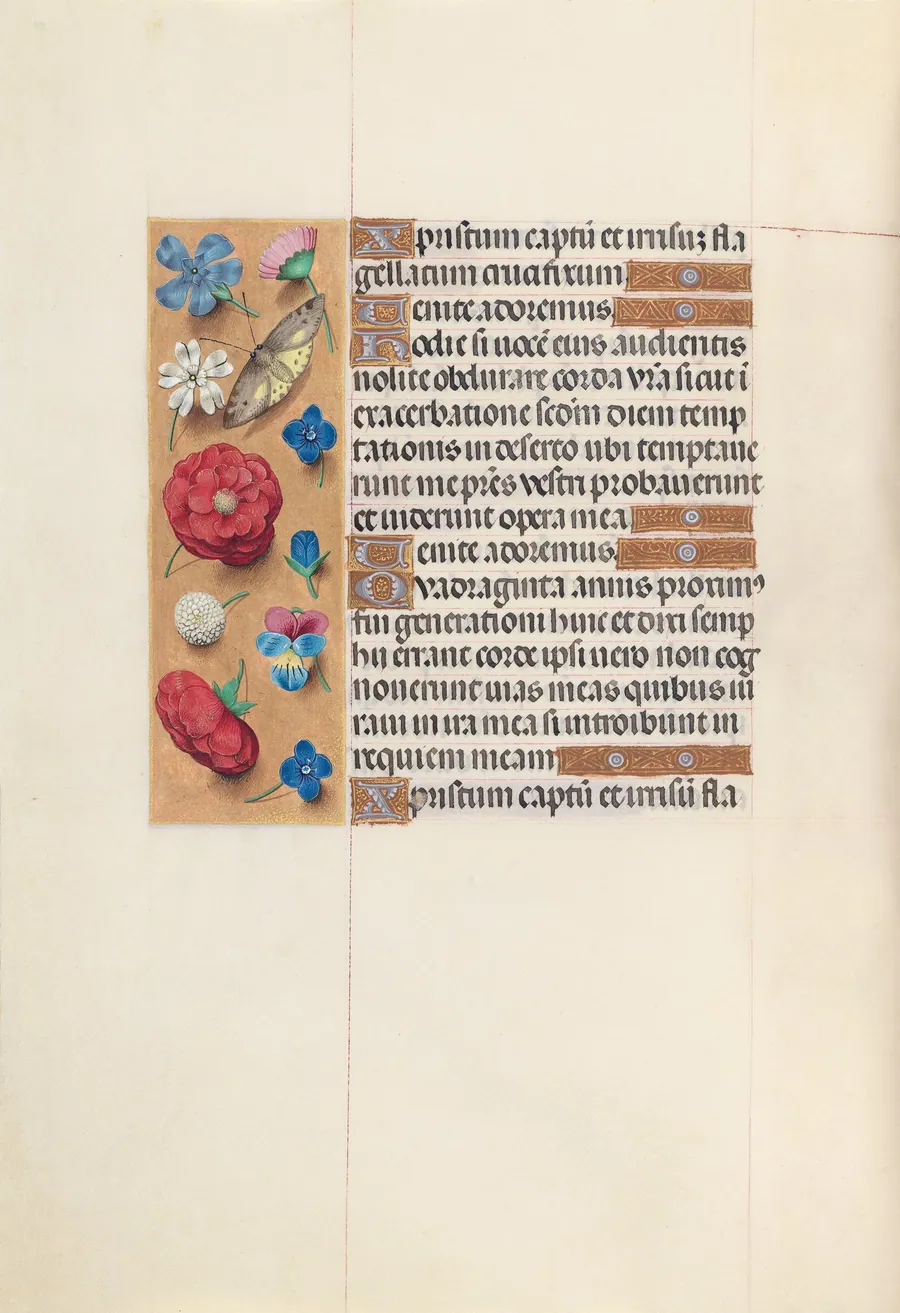 Xpristum captū et irrisuz fla
gellatum crucifixum
Venite adoremus.
Hodie si uocē eius audieritis
nolite obdurare corda vr̄a sicut ī
exacerbatione scd̄m diem temp
tationis in deserto ubi temptaue
runt me pr̄es vestri probauerunt
et uiderunt opera mea
Venite adoremus.
Quadraginta annis proximꝰ
fui generationi huic et dixi semp
hij errant corde ipsi uero non cog
nouerunt uias meas quibus iu
raui in ira mea si introibunt in
requiem meam
Xpristum captū et irrisū fla